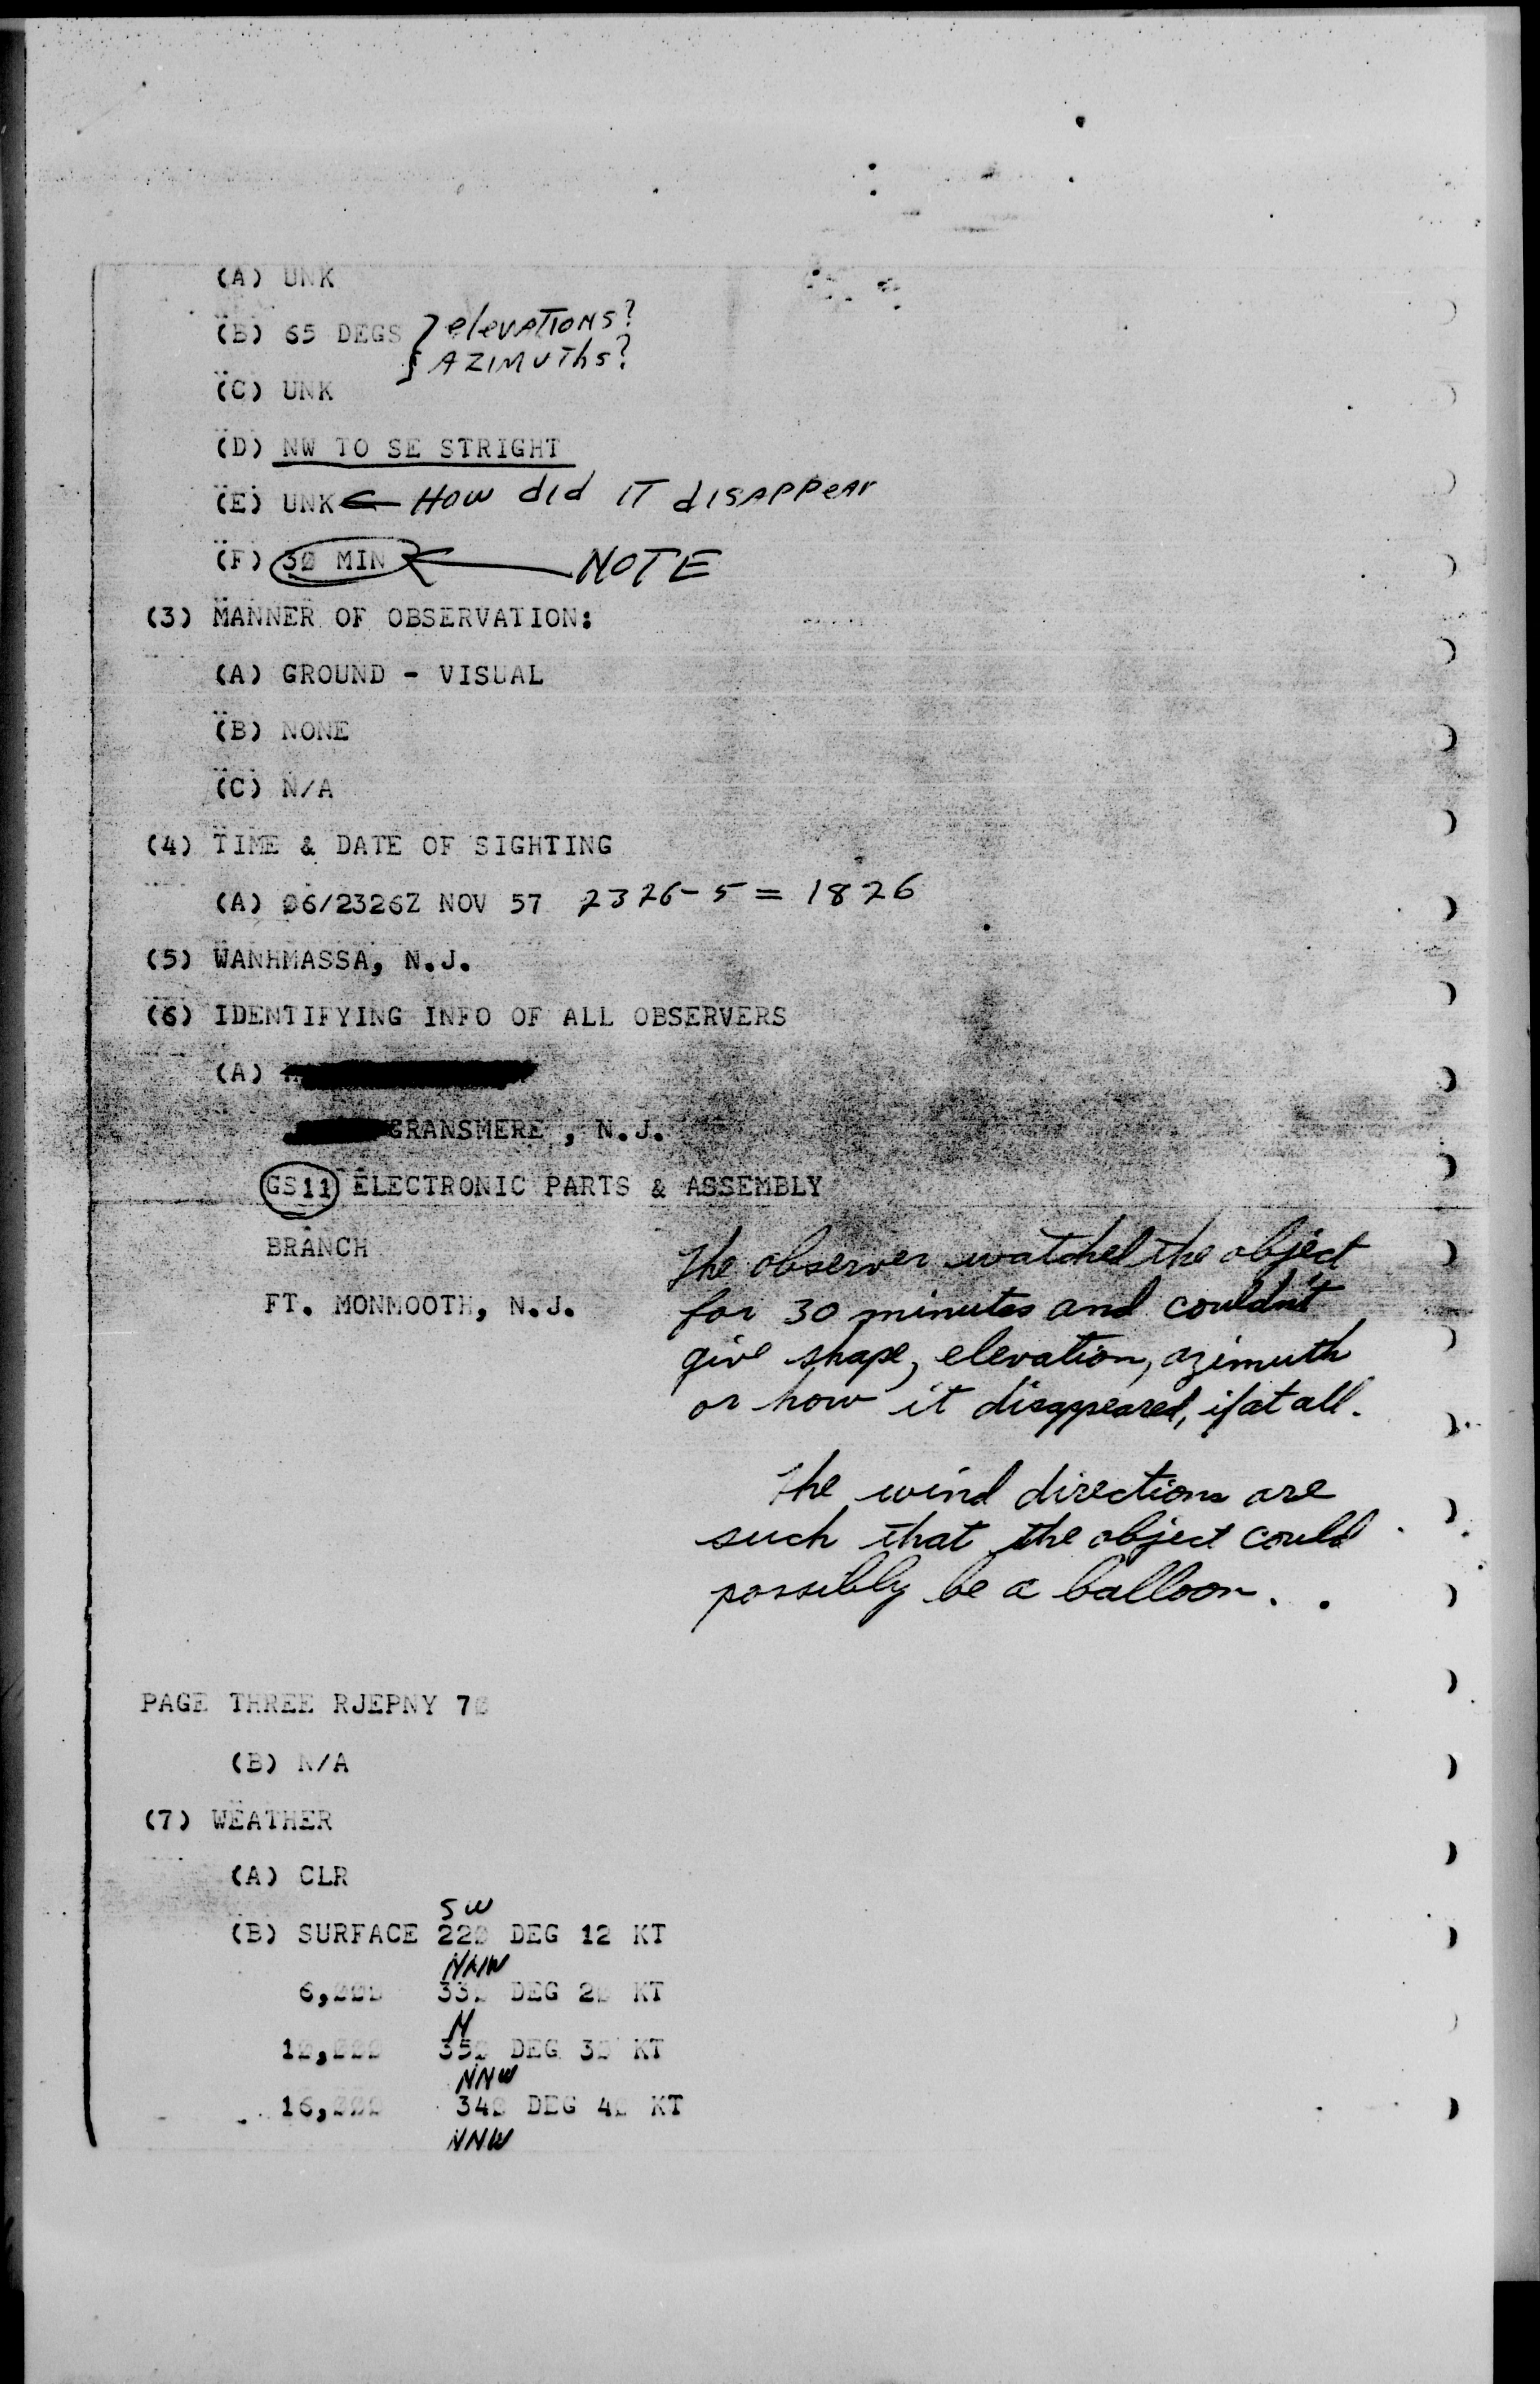 (A) UNK
(B) 65 DEGS } elevations?
} Azimuths?
(C) UNK
(D) NW TO SE STRIGHT
(E) UNK ← How did it disappear
(F) 30 MIN ← NOTE
(3) MANNER OF OBSERVATION:
(A) GROUND - VISUAL
(B) NONE
(C) N/A
(4) TIME & DATE OF SIGHTING
(A) 06/2326Z NOV 57 2326-5 = 1826
(5) WANHMASSA, N.J.
(6) IDENTIFYING INFO OF ALL OBSERVERS
(A)
GRANSMERE , N.J.
GS11 ELECTRONIC PARTS & ASSEMBLY
BRANCH
FT. MONMOOTH, N.J.
The observer watched the object
for 30 minutes and couldn't
give shape, elevation, azimuth
or how it disappeared, if at all.
The wind directions are
such that the object could
possibly be a balloon.
PAGE THREE RJEPNY 70
(B) N/A
(7) WEATHER
(A) CLR
SW
(B) SURFACE 220 DEG 12 KT
NNW
6,000 330 DEG 20 KT
N
10,000 350 DEG 30 KT
NNW
16,000 340 DEG 40 KT
NNW